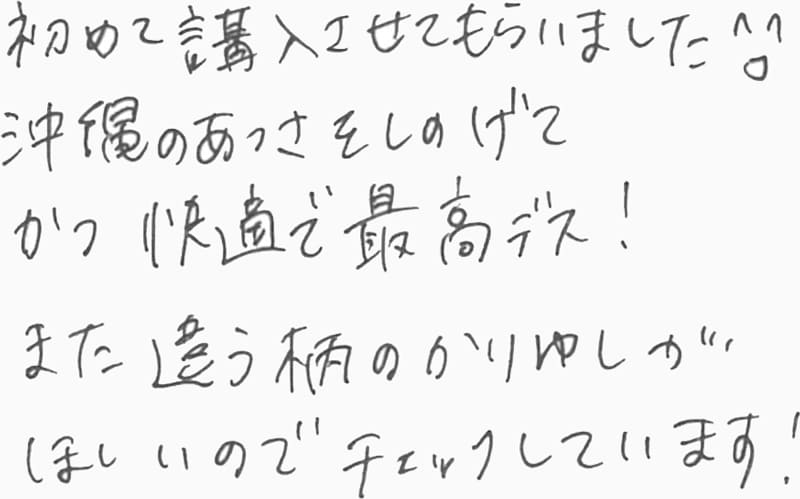 初めて講入させてもらいました^^
沖縄のあっさをしのげて
かつ快適で最高デス!
また違う柄のかりゆしが
ほしいのでチェックしています!